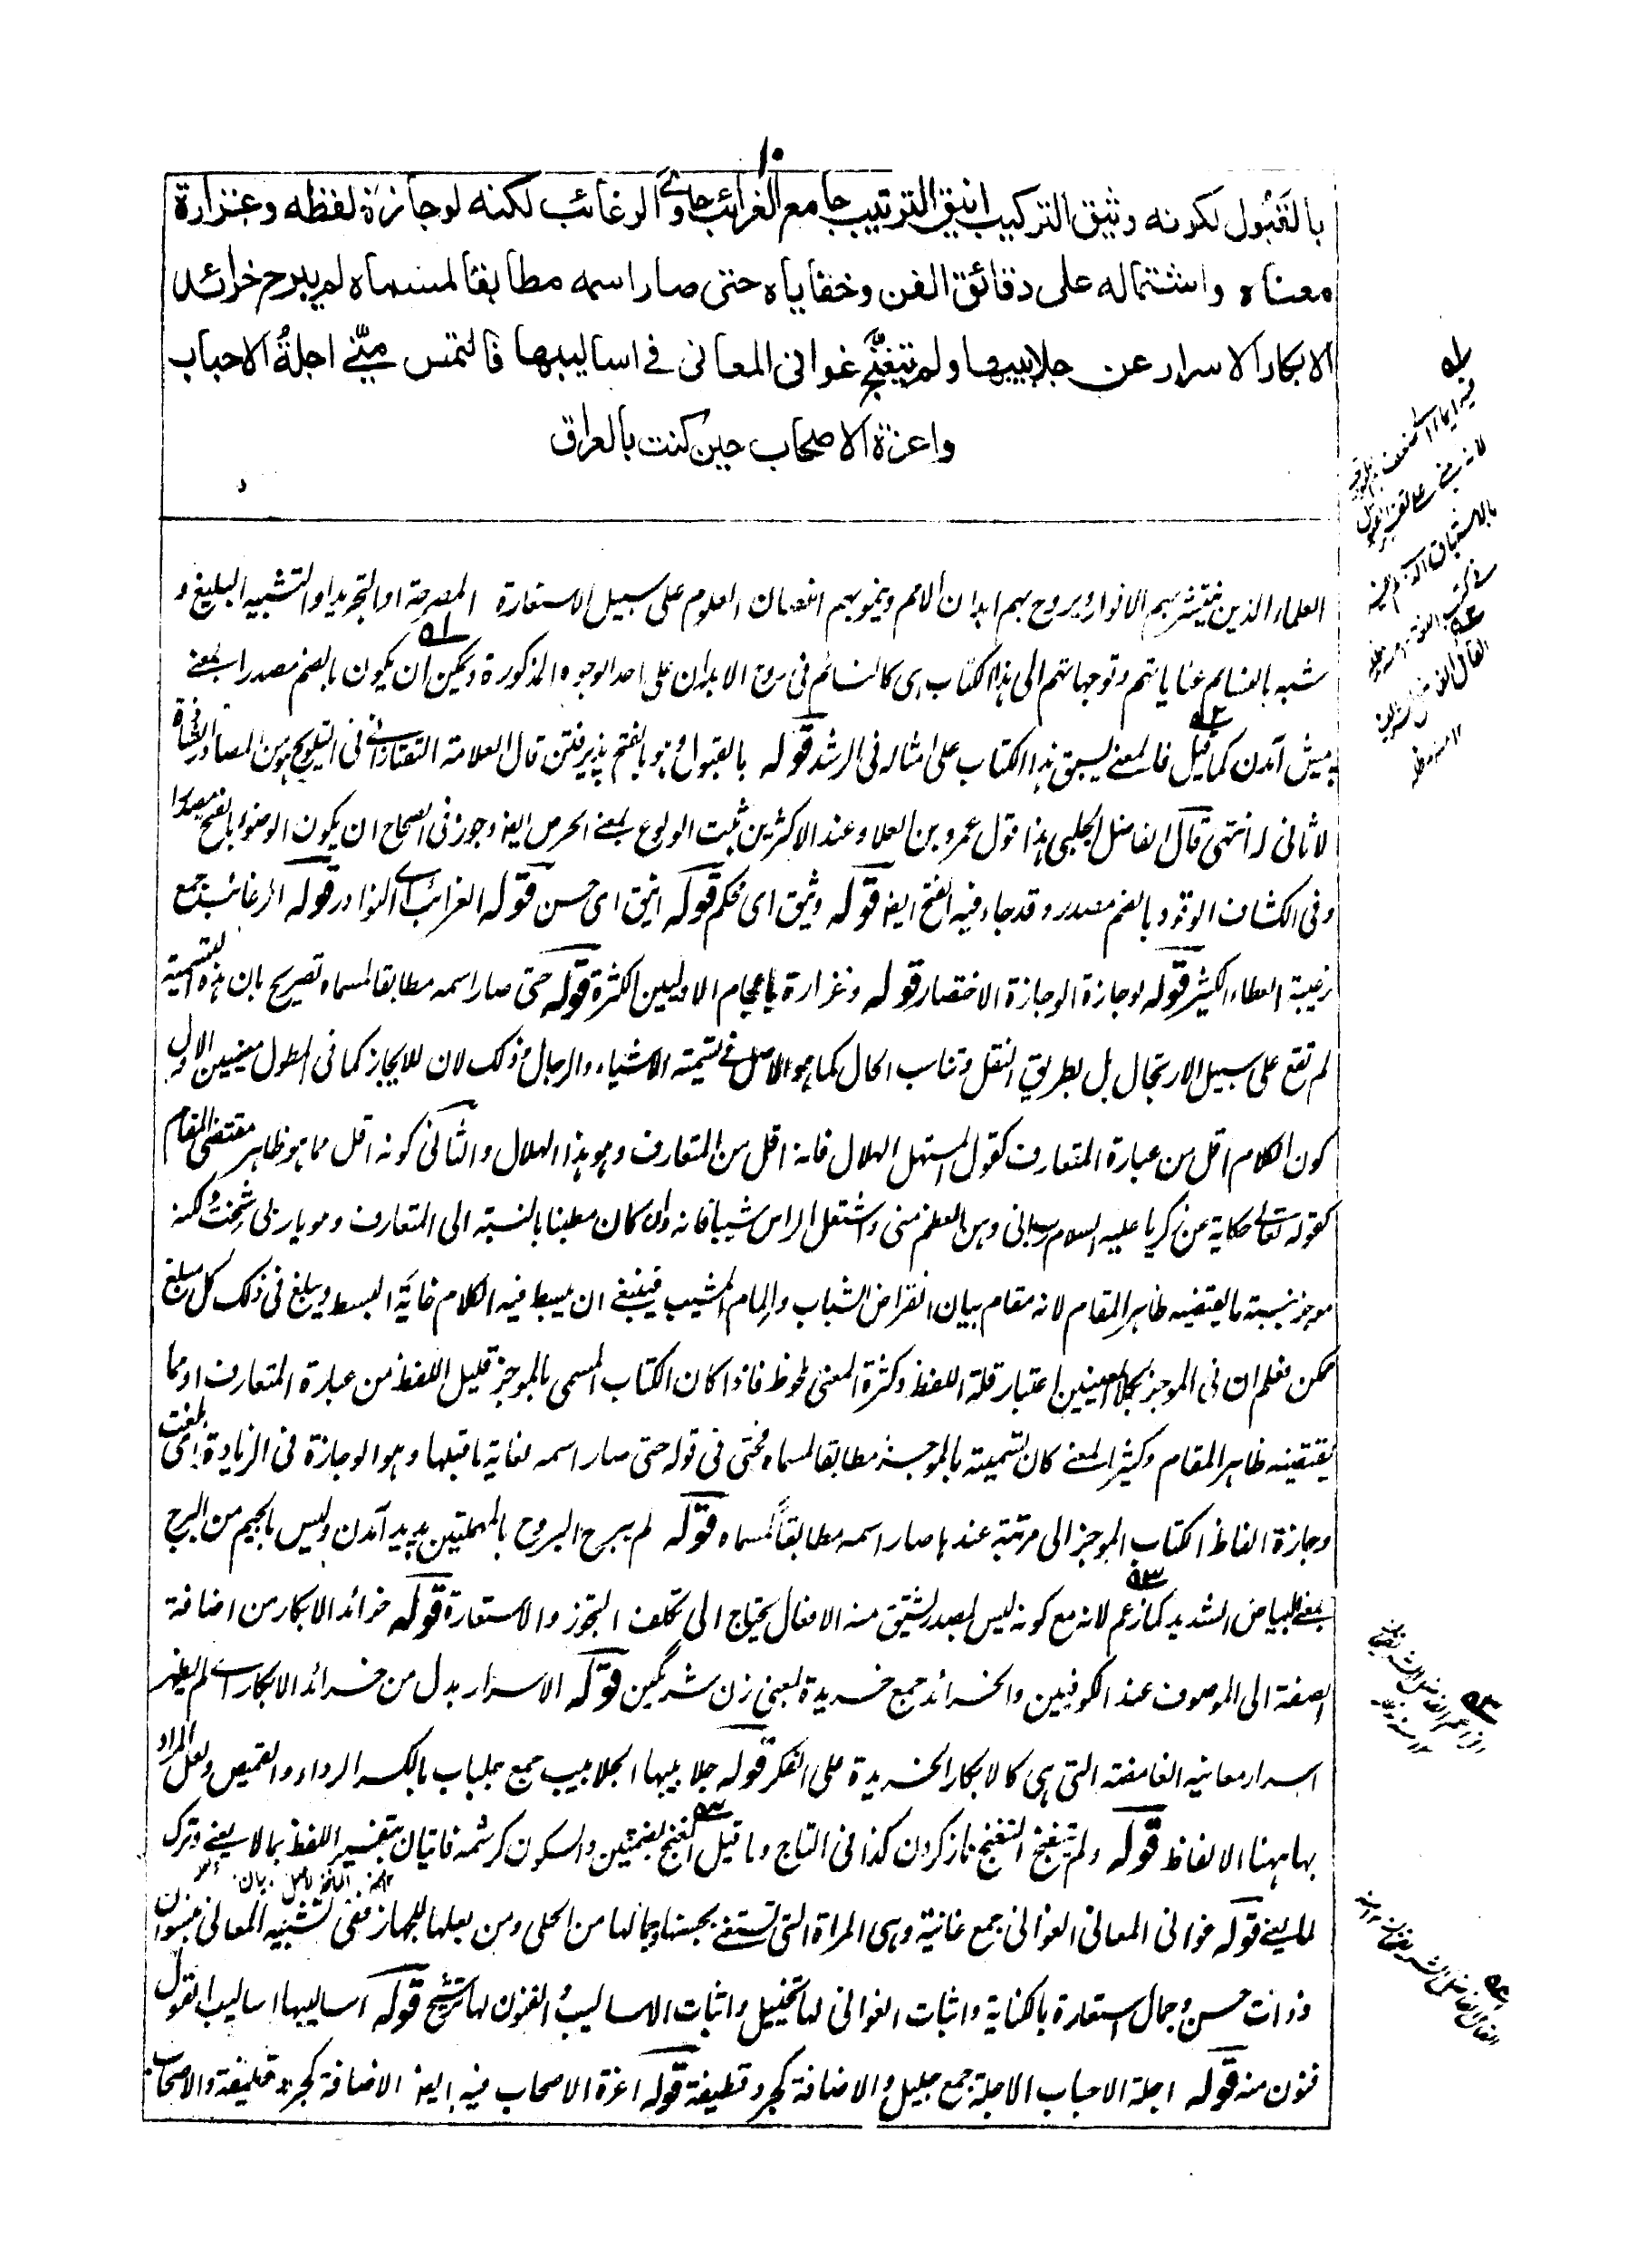 ١٠
بالقَبُول لكونه وثيق التركيب انيق الترتيب جامع الغرائب حاوي الرغائب لكنه لوجازة لفظه وغزارة
معناه واشتماله على دقائق الفن وخفاياه حتى صار اسمه مطابقا لمسماه لم يبرح خرائد
الابكار الاسرار عن جلابيبها ولم تتغنج غواني المعاني في اساليبها فالتمس مِنّي اجلةُ الاحباب
واعزة الاصحاب حين كنت بالعراق
العلماء الذين ينتشر بهم الانوار ويروح بهم ابدان الامم وينمو بهم اغصان العلوم على سبيل الاستعارة المصرحة او التجريد او التشبيه البليغ و
شبه بالنسايم عناياتهم وتوجهاتهم الى هذا الكتاب هي كالنسائم في روح الابدان على احد الوجوه المذكورة ويمكن ان يكون بالضم مصدرا بمعنى
پيش آمدن كما قيل فالمعنى ليسبق هذا الكتاب على امثاله في الرشد قوله بالقبول هو بالفتح پذيرفتن قال العلامة التفتازاني في التلويح هو من المصادر الشاذة
لا ثاني له انتهى قال الفاضل الجلبي هذا قول عمرو بن العلاء وعند الاكثرين ثبت الولوع بمعنى الحرص ايضا وجوز في الصحاح ان يكون الوضوء بالفتح مصدرا
وفي الكشاف الوقود بالضم مصدر وقد جاء فيه الفتح ايضا قوله وثيق اى محكم قوله انيق اى حسن قوله الغرائب اي النوادر قوله الرغائب جمع
رغيبة العطاء الكثير قوله لوجازة الوجازة الاختصار قوله وغزارة باعجام الاوليين الكثرة قوله حتى صار اسمه مطابقا لمسماه تصريح بان هذه التسمية
لم تقع على سبيل الارتجال بل بطريق النقل وتناسب الحال كما هو الاصل في تسمية الاشياء والرجال وذلك لان للايجاز كما في المطول معنيين الاول
كون الكلام اقل من عبارة المتعارف كقول المستهل الهلال فانه اقل من المتعارف وهو هذا الهلال والثاني كونه اقل مما هو ظاهر مقتضى المقام
كقوله تعالى حكاية عن زكريا عليه السلام رب اني وهن العظم مني واشتعل الراس شيبا فانه وان كان مطنبا بالنسبة الى المتعارف وهو يا رب شخت ولكنه
موجز بنسبة ما يقتضيه ظاهر المقام لانه مقام بيان انقراض الشباب والمام المشيب فينبغي ان يبسط فيه الكلام غاية البسط ويبلغ في ذلك كل مبلغ
ممكن فعلم ان في الموجز بكلا المعنيين اعتبار قلة اللفظ وكثرة المعنى ملحوظ فاذا كان الكتاب المسمى بالموجز قليل اللفظ من عبارة المتعارف او مما
يقتضيه ظاهر المقام وكثير المعنى كان تسميته بالموجز مطابقا لمسماه فحتى في قوله حتى صار اسمه لغاية ما قبلها وهو الوجازة في الزيادة اى بلغت
وجازة الفاظ الكتاب الموجز الى مرتبة عندها صار اسمه مطابقاً لمسماه قوله لم يبرح البروح بالمهملتين پديد آمدن وليس بالجيم من البرج
بمعنى البياض الشديد كما زعم لانه مع كونه ليس بمصدر ليشتق منه الافعال يحتاج الى تكلف التجوز والاستعارة قوله خرائد الابكار من اضافة
الصفة الى الموصوف عند الكوفيين والخرائد جمع خريدة بمعنى زن شرمگين قوله الاسرار بدل من خرائد الابكار اى لم يظهر
اسرار معانيه الغامضة التي هي كالابكار الخريدة على الفكر قوله جلابيبها الجلابيب جمع جلباب بالكسر الرداء والقميص ولعل المراد
بها ههنا الالفاظ قوله ولم تتغنج التغنج ناز كردن كذا في التاج وما قيل الغنج بضمتين والسكون كرشمه فاتيان بتفسير اللفظ بما لا يعنى وترك
لما يعنى قوله غواني المعاني الغواني جمع غانية وهي المرأة التي تستغني بحسنها وجمالها من الحلى ومن بعلها للجهاز ففى تشبيه المعاني بنسوان
ذوات حسن وجمال استعارة بالكناية واثبات الغواني لها تخييل واثبات الاساليب الفنون لها ترشيح قوله اساليبها اساليب القول
فنون منه قوله اجلة الاحباب الاجلة جمع جليل والاضافة كجرد قطيفة قوله اعزة الاصحاب فيه ايضا الاضافة كجرد قطيفة والاصحاب